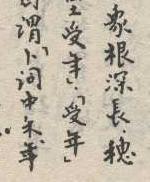 象根深長，穗
受年」「受年」
謂卜詞中禾年